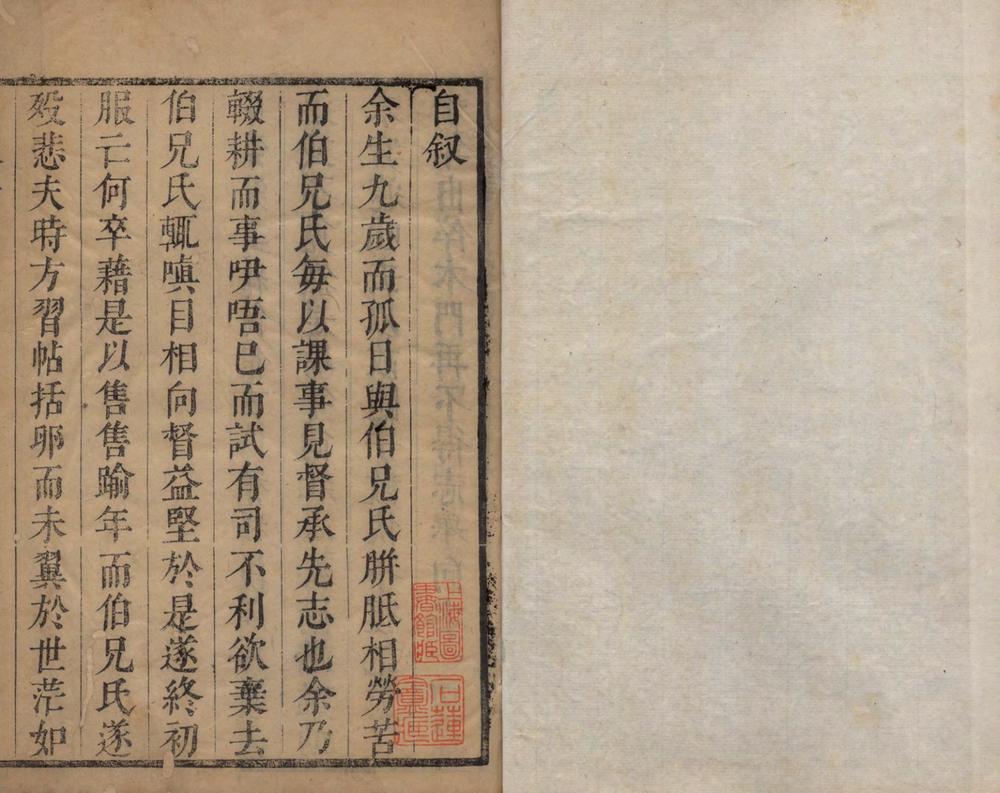 自叙
余生九歲而孤日與伯兄氏胼胝相勞苦
而伯兄氏每以課事見督承先志也余乃
輟耕而事咿唔已而試有司不利欲棄去
伯兄氏輒嗔目相向督益堅於是遂終初
服亡何卒藉是以售售踰年而伯兄氏遂
歿悲夫時方習帖括卵而未翼於世茫如
上海圖
書館藏
石蓮